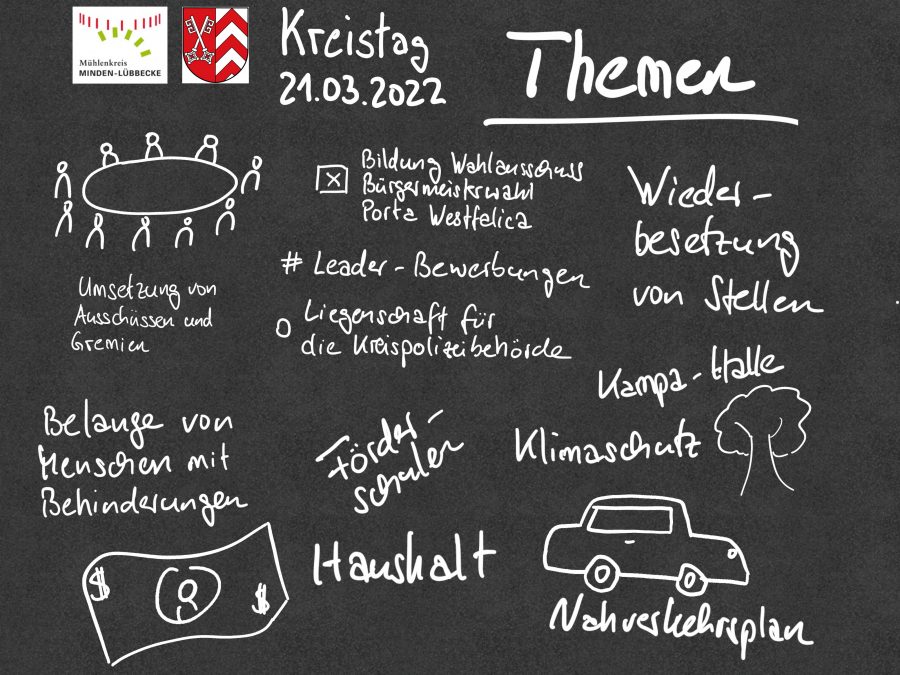 Mühlenkreis
MINDEN-LÜBBECKE
Kreistag
21.03.2022
Themen
Umsetzung von
Ausschüssen und
Gremien
Bildung Wahlausschuss
Bürgermeisterwahl
Porta Westfelica
# Leader-Bewerbungen
O Liegenschaft für
die Kreispolizeibehörde
Wieder-
besetzung
von Stellen
Kampa-Halle
Klimaschutz
Belange von
Menschen mit
Behinderungen
Förder-
schulen
Haushalt
$ $
Nahverkehrsplan